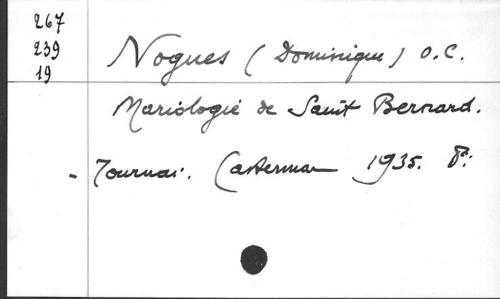 267
239
19
Nogues (Dominique) O.C.
Mariologie de Saint Bernard.
- Tournai. Casterman 1935. P: